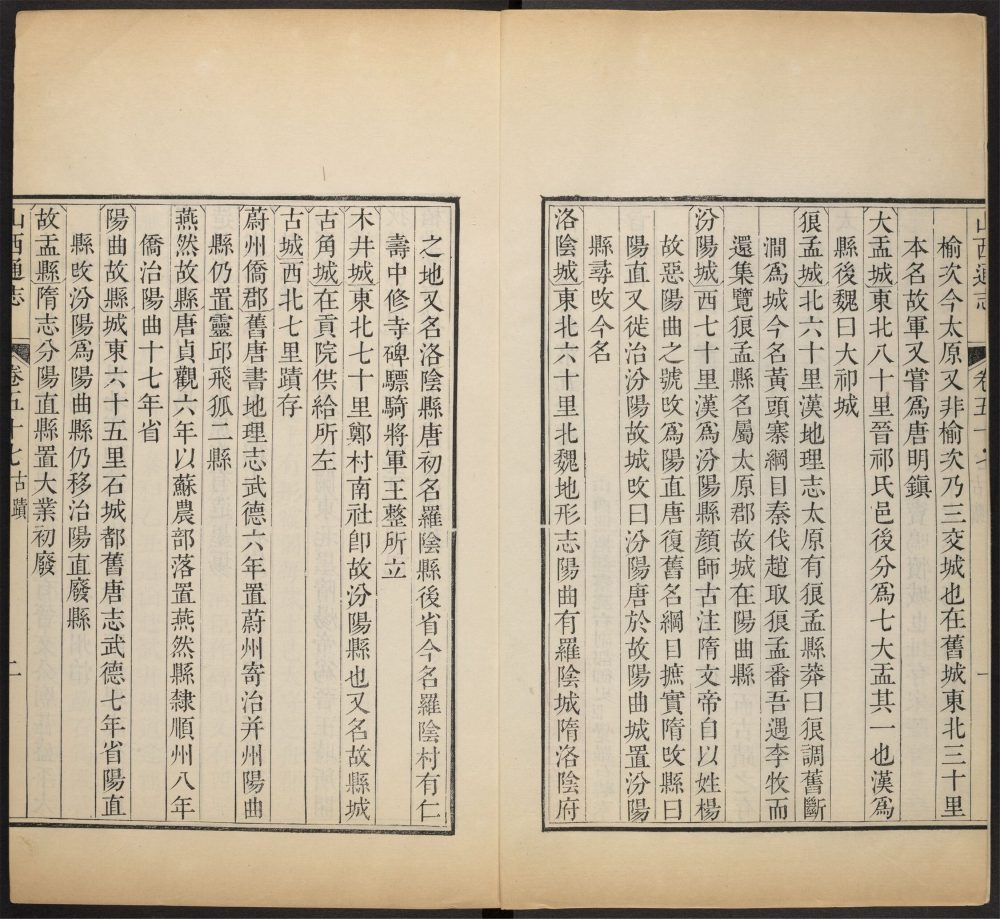 山西通志 卷五十七 一
榆次今太原又非榆次乃三交城也在舊城東北三十里
本名故軍又嘗爲唐明鎭
大盂城東北八十里晉祁氏邑後分爲七大盂其一也漢爲
縣後魏曰大祁城
狼孟城北六十里漢地理志太原有狼孟縣莽曰狼調舊斷
澗爲城今名黃頭寨綱目秦伐趙取狼孟番吾遇李牧而
還集覽狼孟縣名屬太原郡故城在陽曲縣
汾陽城西七十里漢爲汾陽縣顏師古注隋文帝自以姓楊
故惡陽曲之號攺爲陽直唐復舊名綱目摭實隋攺縣曰
陽直又徙治汾陽故城攺曰汾陽唐於故陽曲城置汾陽
縣尋攺今名
洛陰城東北六十里北魏地形志陽曲有羅陰城隋洛陰府
之地又名洛陰縣唐初名羅陰縣後省今名羅陰村有仁
壽中修寺碑驃騎將軍王整所立
木井城東北七十里鄭村南社卽故汾陽縣也又名故縣城
古角城在貢院供給所左
古城西北七里蹟存
蔚州僑郡舊唐書地理志武德六年置蔚州寄治并州陽曲
縣仍置靈邱飛狐二縣
燕然故縣唐貞觀六年以蘇農部落置燕然縣隸順州八年
僑治陽曲十七年省
陽曲故縣城東六十五里石城都舊唐志武德七年省陽直
縣攺汾陽爲陽曲縣仍移治陽直廢縣
故盂縣隋志分陽直縣置大業初廢
山西通志 卷五十七 古蹟 二